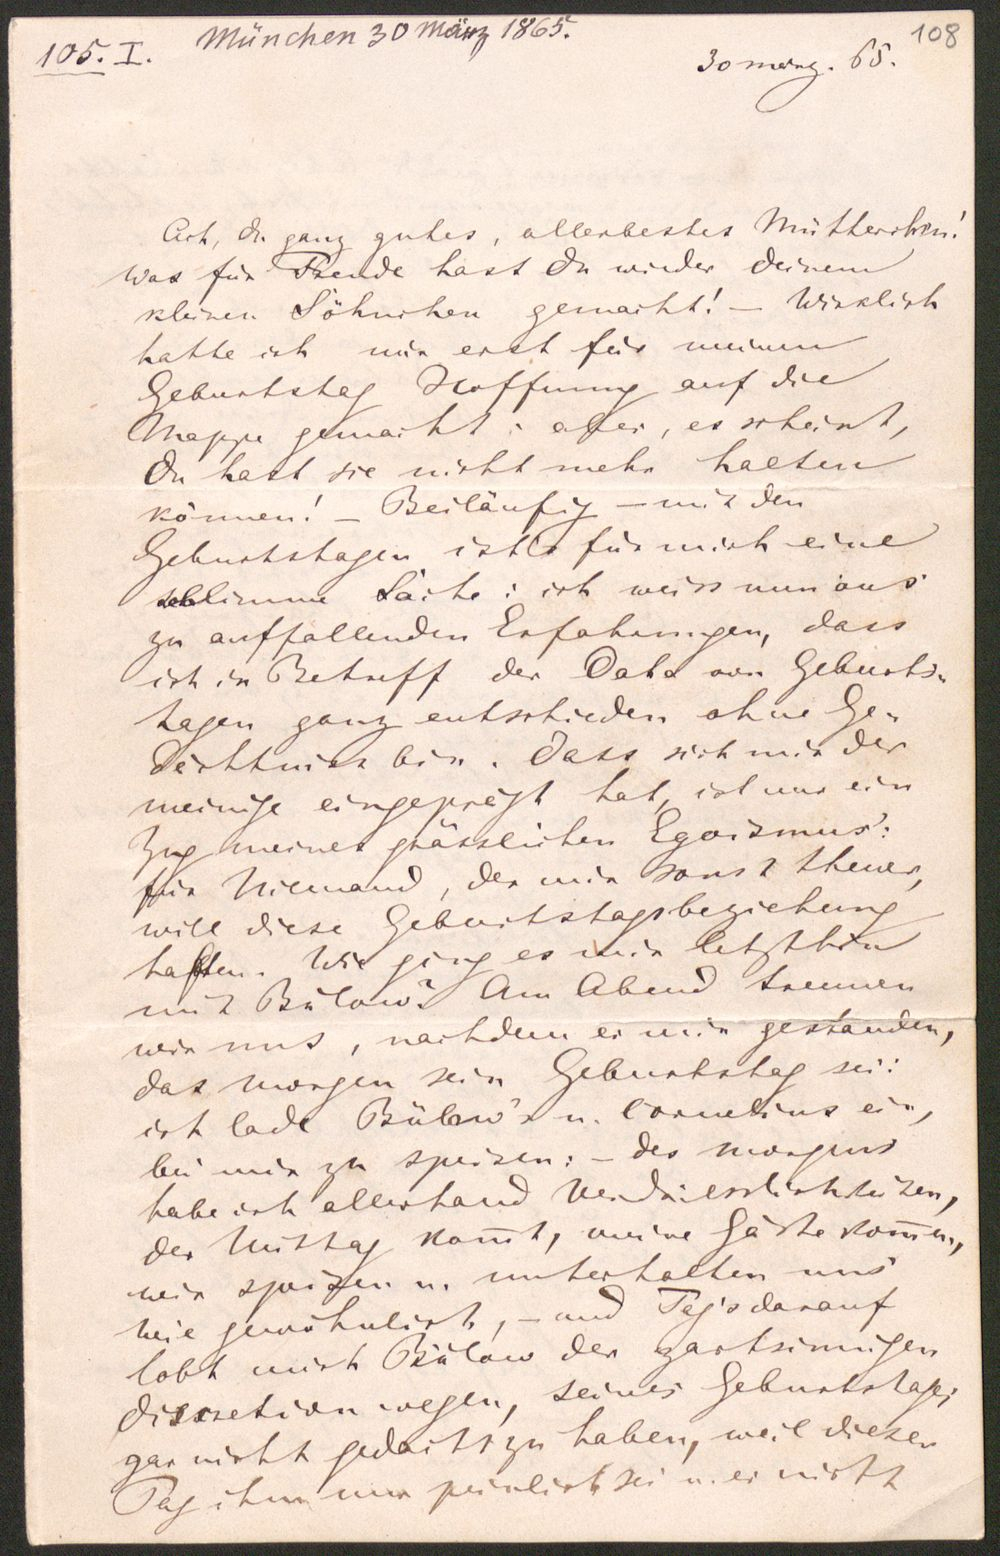 105. I.
München 30 März 1865.
108
30 märz. 65.
Ach, du ganz gutes, allerbestes Mütterchen!
Was für Freude hast du wieder deinem
kleinen Söhnchen gemacht! – Wirklich
hatte ich mir erst für meinen
Geburtstag Hoffnung auf die
Mappe gemacht: aber, es scheint,
du hast sie nicht mehr halten
können! – Beiläufig – mit den
Geburtstagen ist's für mich eine
schlimme Sache: ich weiss nun aus
zu auffallenden Erfahrungen, dass
ich in Betreff der Data von Geburts-
tagen ganz entschieden ohne Ge-
dächtniss bin. Dass sich mir der
meinige eingeprägt hat, ist nur ein
Zug meines grässlichen Egoismus:
für Niemand, der mir sonst theuer,
will diese Geburtstagsbeziehung
haften. Wie ging es mir letzthin
mit Bülow? Am Abend trennen
wir uns, nachdem er mir gestanden,
das morgen sein Geburtstag sei:
ich lade Bülow's u. Cornelius ein,
bei mir zu speisen: – des morgens
habe ich allerhand Verdriesslichkeiten,
der Mittag kom̄t, meine Gäste kom̄en,
wir speisen u. unterhalten uns
wie gewöhnlich, – und Tag's darauf
lobt mich Bülow der zartsinnigen
Discretion wegen, seines Geburtstages
gar nicht gedacht zu haben, weil dieser
Tag ihm nur peinlich sei u. er nicht